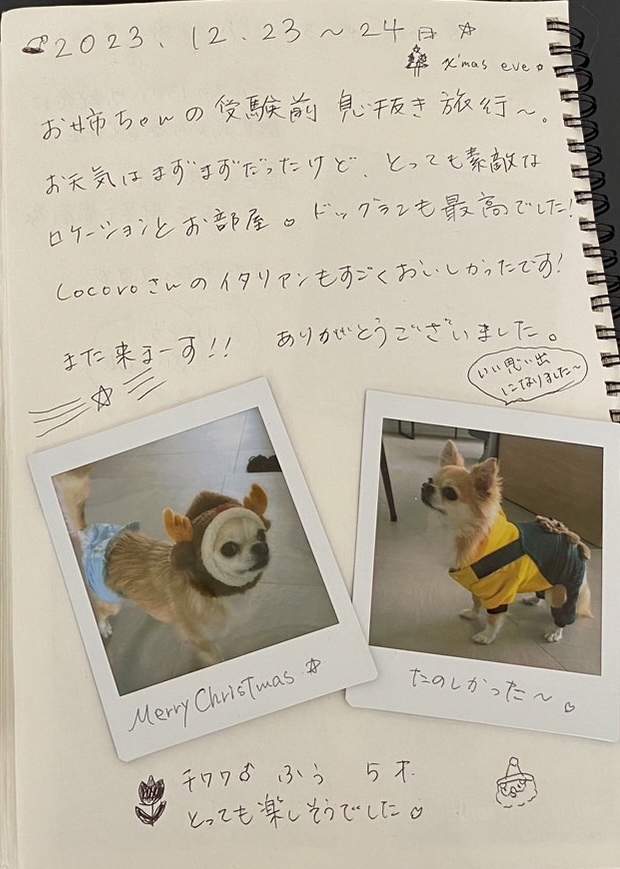 2023.12.23～24日☆
x'mas eve。
お姉ちゃんの受験前 息抜き旅行～。
お天気はまずまずだったけど、とっても素敵な
ロケーションとお部屋♡ドッグランも最高でした!
Cocoroさんのイタリアンもすごくおいしかったです!
また来まーす!! ありがとうございました。
いい思い出
になりました～
Merry Christmas ☆
たのしかった～♡
チワワ♂ ふう 5才.
とっても楽しそうでした♡